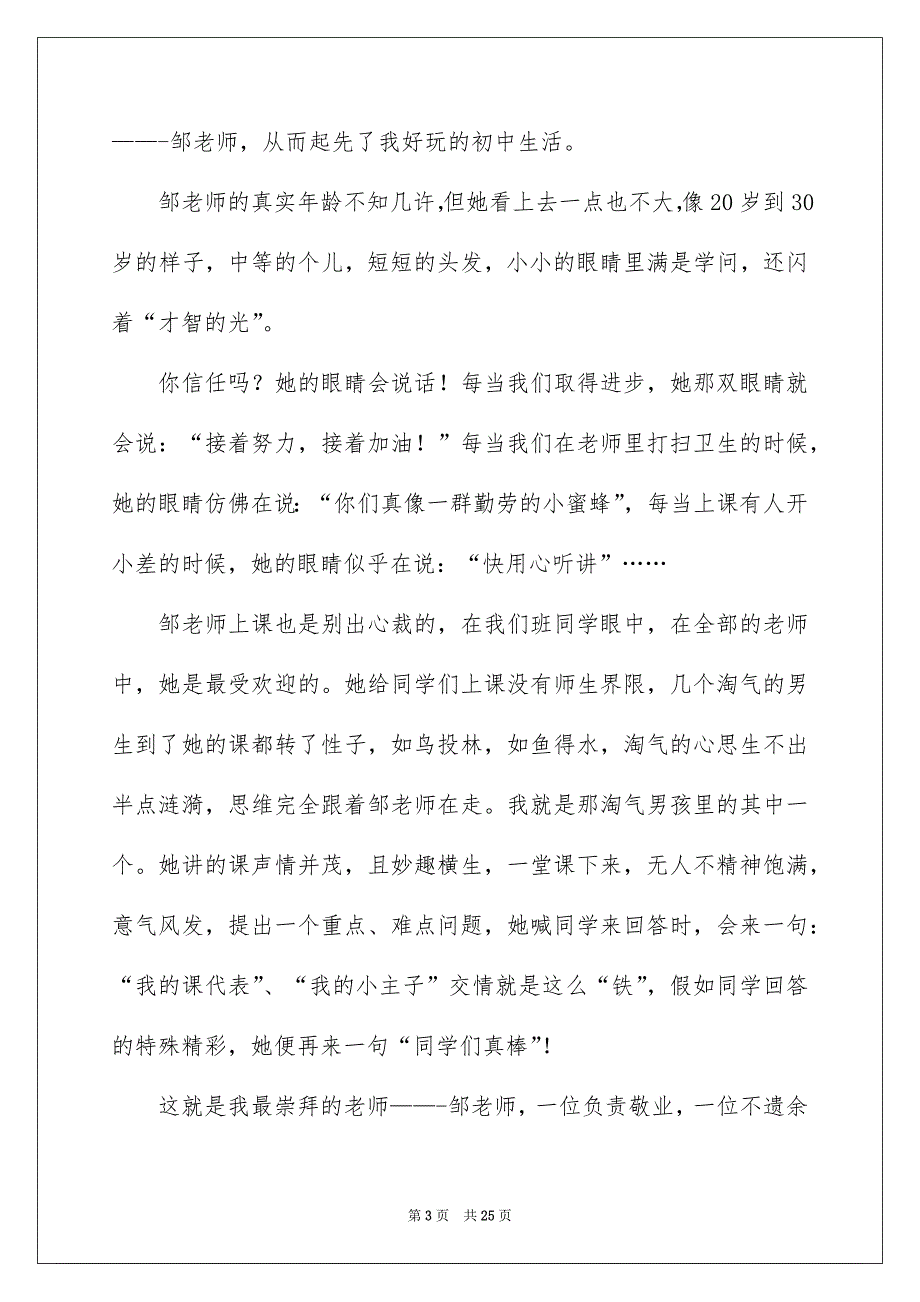 ———-邹老师，从而起先了我好玩的初中生活。
邹老师的真实年龄不知几许，但她看上去一点也不大，像 20 岁到 30
岁的样子，中等的个儿，短短的头发，小小的眼睛里满是学问，还闪
着“才智的光”。
你信任吗？她的眼睛会说话！每当我们取得进步，她那双眼睛就
会说：“接着努力，接着加油！”每当我们在老师里打扫卫生的时候，
她的眼睛仿佛在说：“你们真像一群勤劳的小蜜蜂”，每当上课有人开
小差的时候，她的眼睛似乎在说：“快用心听讲”……
邹老师上课也是别出心裁的，在我们班同学眼中，在全部的老师
中，她是最受欢迎的。她给同学们上课没有师生界限，几个淘气的男
生到了她的课都转了性子，如鸟投林，如鱼得水，淘气的心思生不出
半点涟漪，思维完全跟着邹老师在走。我就是那淘气男孩里的其中一
个。她讲的课声情并茂，且妙趣横生，一堂课下来，无人不精神饱满，
意气风发，提出一个重点、难点问题，她喊同学来回答时，会来一句：
“我的课代表”、“我的小主子”交情就是这么“铁”，假如同学回答
的特殊精彩，她便再来一句“同学们真棒”！
这就是我最崇拜的老师———-邹老师，一位负责敬业，一位不遗余
第 3 页 共 25 页